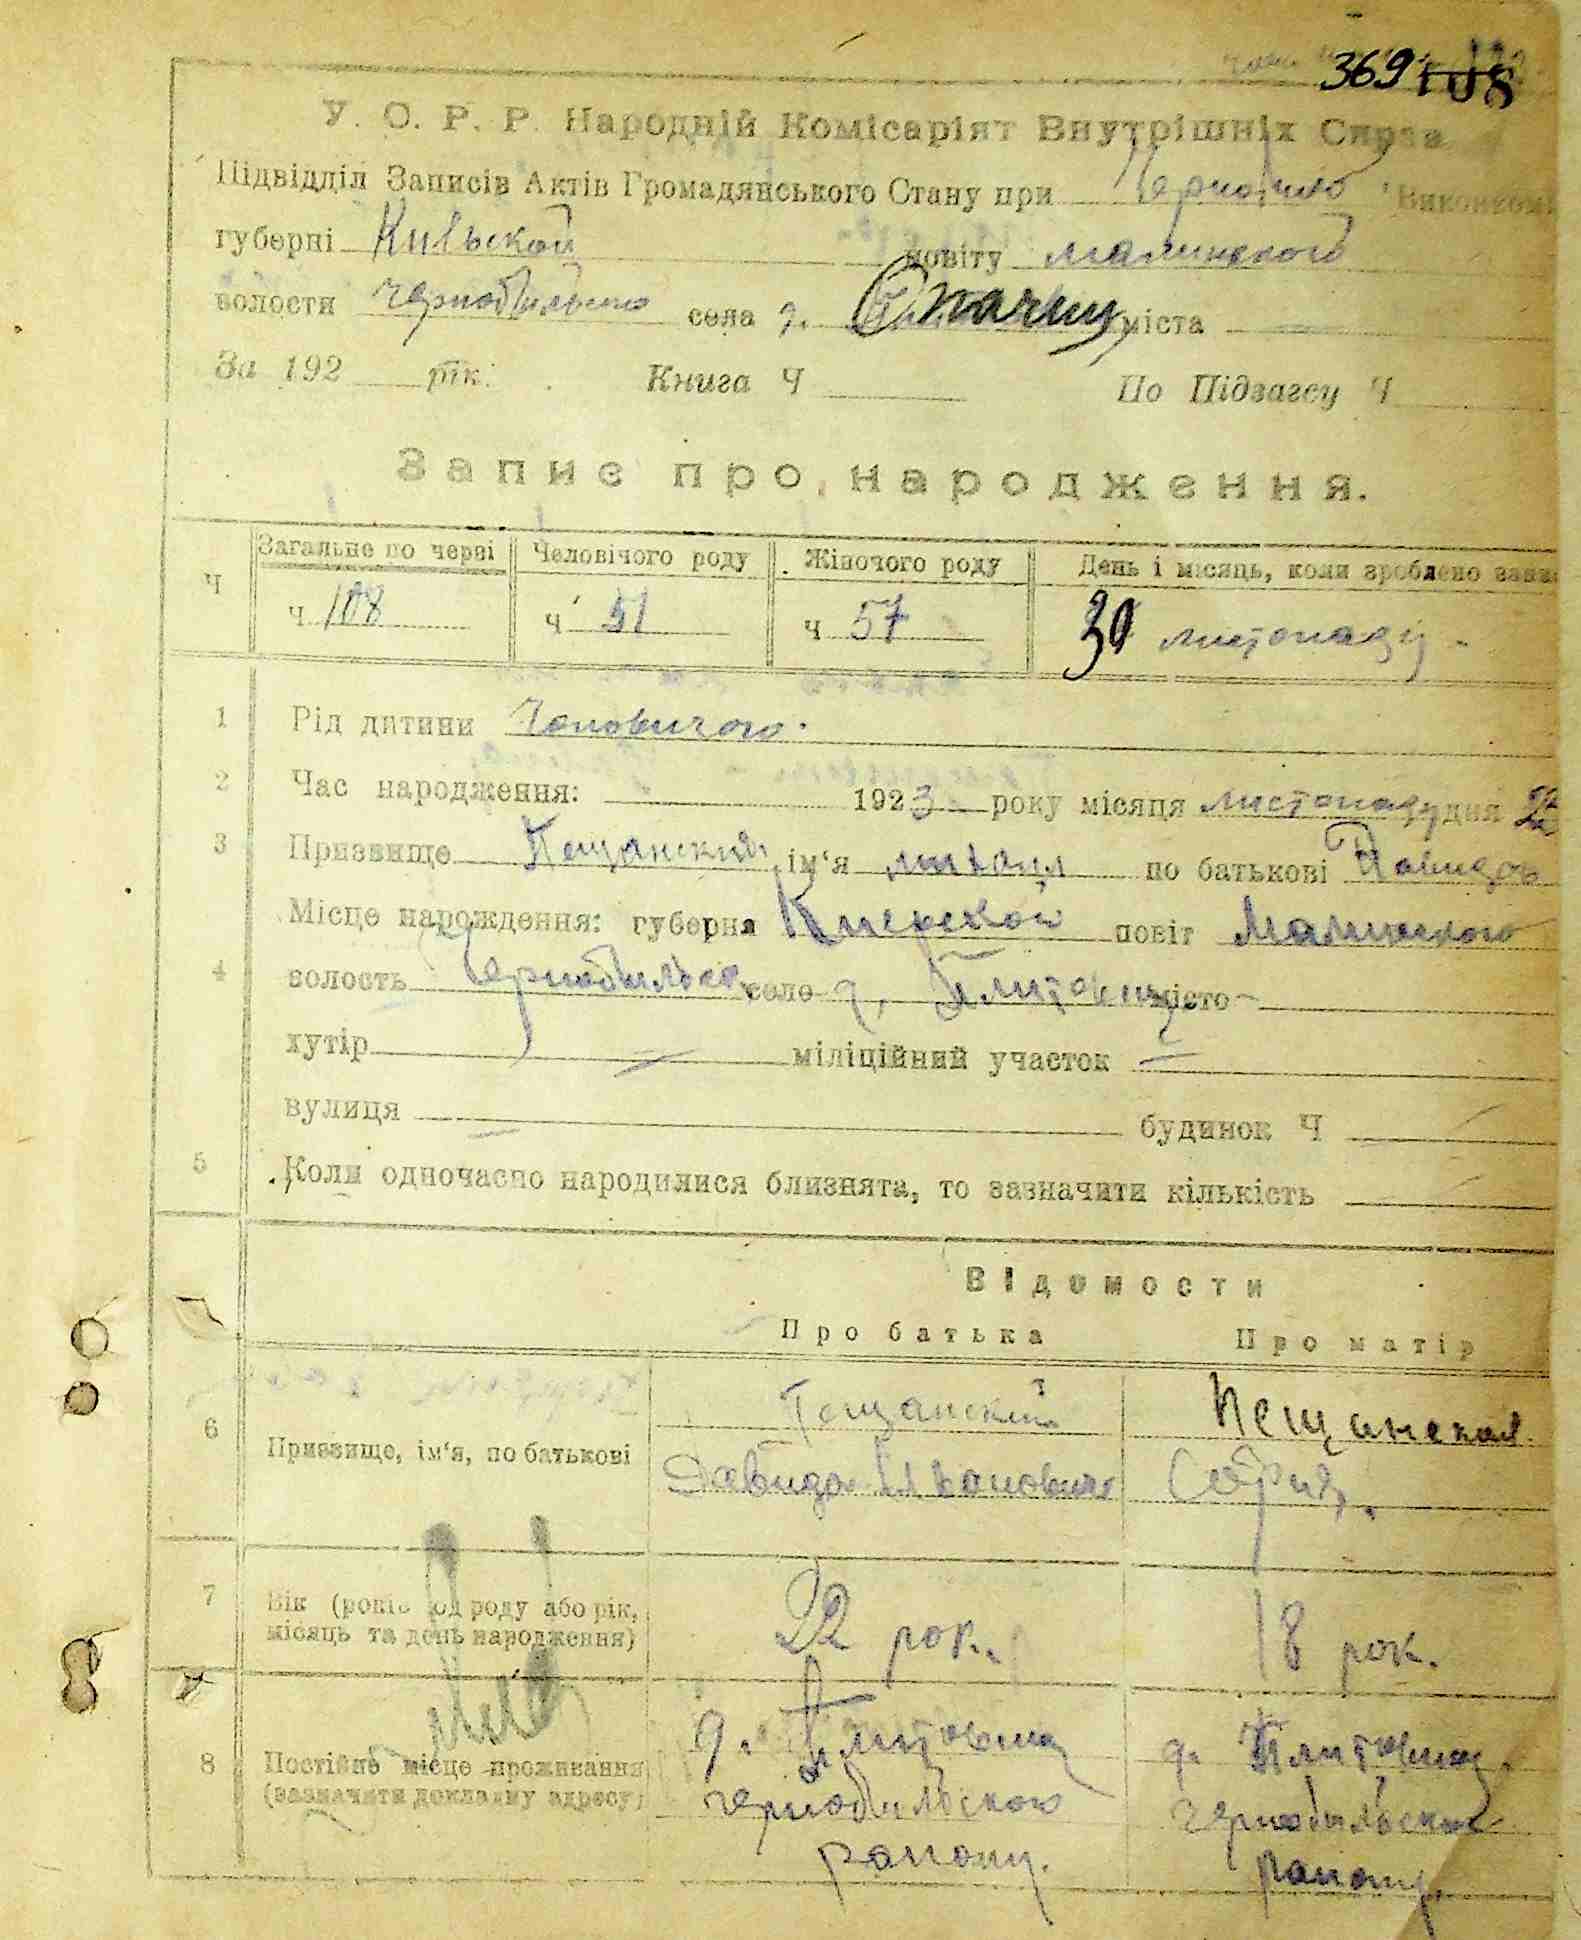 369 108
У. О. Р. Р. Народній Комісаріят Внутрішніх Справ
Підвідділ Записів Актів Громадянського Стану при Чернобило Виконкомі
губерні Киівськой повіту малинского
волости чернобильско села д. Опачиц міста
За 192 рік. Книга Ч По Підзагсу Ч
Запис про народження.
Ч Загальне по черзі Человічого роду Жіночого роду День і місяць, коли зроблено запис
Ч 108 Ч 51 Ч 57 30 листопаду
1 Рід дитини Чоловичого.
2 Час народження: 1923 року місяця листопаду дня
3 Призвище Пещанский ім'я михаил по батькові Давидов
Місце народження: губерня Киевской повіт Малинского
4 волость Чернобильск село д. Плитовищ місто
хутір міліційний участок
вулиця будинок Ч
5 Коли одночасно народилися близнята, то зазначити кількість
Відомости
Про батька Про матір
6 Призвище, ім'я, по батькові Пещанский Пещинская
Давидо Иванович София.
7 Вік (років од роду або рік, місяць та день народження) 22 рок. 18 рок.
8 Постійне місце проживання (зазначити докладну адресу) д. Плитовищ д. Плитовищ
чернобильского чернобильского
раиону. раиону.